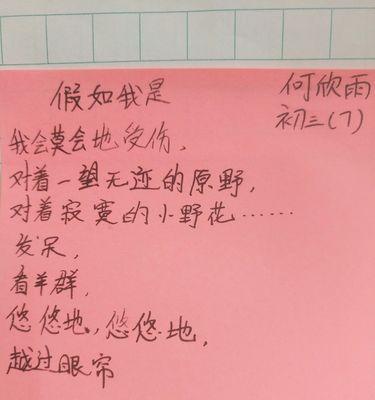 假如我是
何欣雨
初三(7)
我会莫会地受伤,
对着一望无迹的原野,
对着寂寞的小野花……
发呆,
看羊群,
悠悠地,悠悠地,
越过眼帘